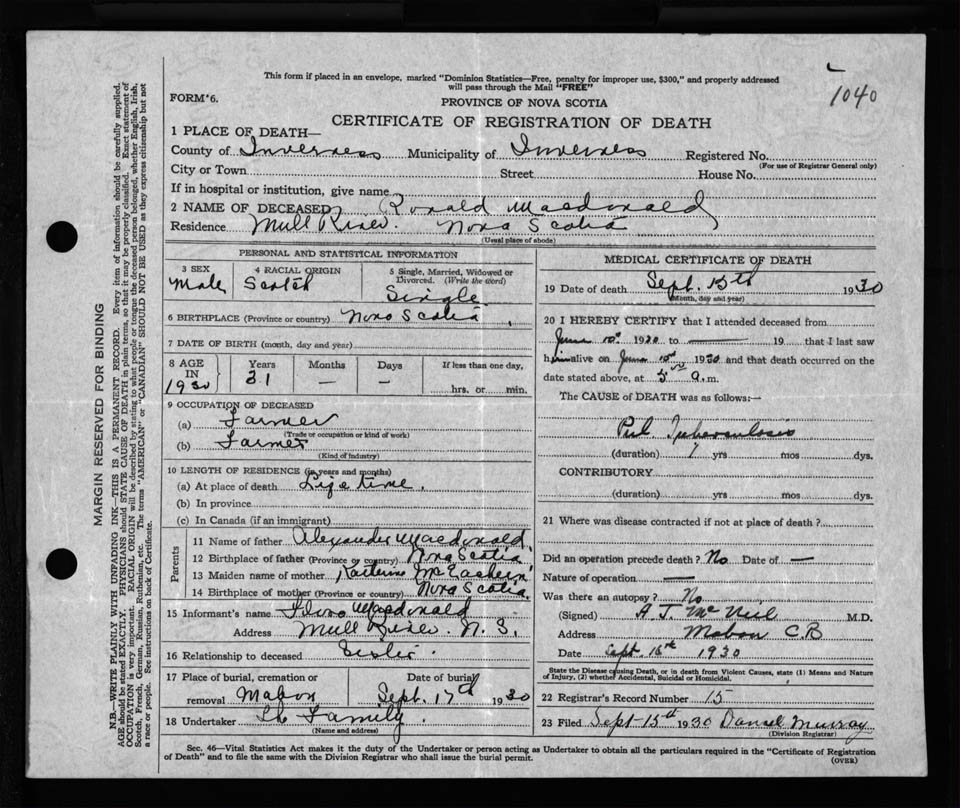 This form if placed in an envelope, marked "Dominion Statistics—Free, penalty for improper use, $300," and properly addressed
will pass through the Mail "FREE"
1040
FORM 6.
PROVINCE OF NOVA SCOTIA
CERTIFICATE OF REGISTRATION OF DEATH
1 PLACE OF DEATH—
County of Inverness Municipality of Inverness Registered No.
(For use of Registrar General only)
City or Town Street House No.
If in hospital or institution, give name
2 NAME OF DECEASED Ronald Macdonald
Residence Mull River. Nova Scotia
(Usual place of abode)
PERSONAL AND STATISTICAL INFORMATION
3 SEX 4 RACIAL ORIGIN 5 Single, Married, Widowed or
Divorced. (Write the word)
Male Scotch Single
6 BIRTHPLACE (Province or country) Nova Scotia
7 DATE OF BIRTH (month, day and year)
8 AGE IN Years Months Days If less than one day,
1930 31 — — hrs. or min.
9 OCCUPATION OF DECEASED
(a) Farmer
(Trade or occupation or kind of work)
(b) Farmer
(Kind of Industry)
10 LENGTH OF RESIDENCE (in years and months)
(a) At place of death Life time.
(b) In province
(c) In Canada (if an immigrant)
Parents
11 Name of father Alexander Macdonald
12 Birthplace of father (Province or country) Nova Scotia
13 Maiden name of mother McEachern
14 Birthplace of mother (Province or country) Nova Scotia
15 Informant's name Flora Macdonald
Address Mull River. N. S.
16 Relationship to deceased Sister.
17 Place of burial, cremation or Date of burial
removal Mabou Sept. 17th 1930
18 Undertaker The Family.
(Name and address)
MEDICAL CERTIFICATE OF DEATH
19 Date of death Sept. 15th 1930
(Month, day and year)
20 I HEREBY CERTIFY that I attended deceased from
June 10th 1930 to — 19 that I last saw
him alive on June 10th 1930 and that death occurred on the
date stated above, at 5 a.m.
The CAUSE of DEATH was as follows:—
Pul. Tuberculosis
(duration) yrs mos dys.
CONTRIBUTORY
(duration) yrs mos dys.
21 Where was disease contracted if not at place of death?
Did an operation precede death? No Date of —
Nature of operation —
Was there an autopsy? No
(Signed) A. J. McNeil M.D.
Address Mabou C.B
Date Sept. 15th 1930
State the Disease causing Death, or in death from Violent Causes, state (1) Means and Nature
of Injury, (2) whether Accidental, Suicidal or Homicidal.
22 Registrar's Record Number 15
23 Filed Sept-15th 1930 Daniel Murray
(Division Registrar)
Sec. 46—Vital Statistics Act makes it the duty of the Undertaker or person acting as Undertaker to obtain all the particulars required in the "Certificate of Registration
of Death" and to file the same with the Division Registrar who shall issue the burial permit.
(OVER)
MARGIN RESERVED FOR BINDING
N.B.—WRITE PLAINLY WITH UNFADING INK—THIS IS A PERMANENT RECORD. Every item of information should be carefully supplied.
AGE should be stated EXACTLY. PHYSICIANS should STATE CAUSE OF DEATH in plain terms, so that it may be properly classified. Exact statement of
OCCUPATION is very important. RACIAL ORIGIN will be described by stating to what people or tongue the deceased person belonged, whether English, Irish,
Scotch, French, German, Russian, Ruthenian, etc. The terms "AMERICAN" or "CANADIAN" SHOULD NOT BE USED as they express citizenship but not
a race or people. See instructions on back of Certificate.